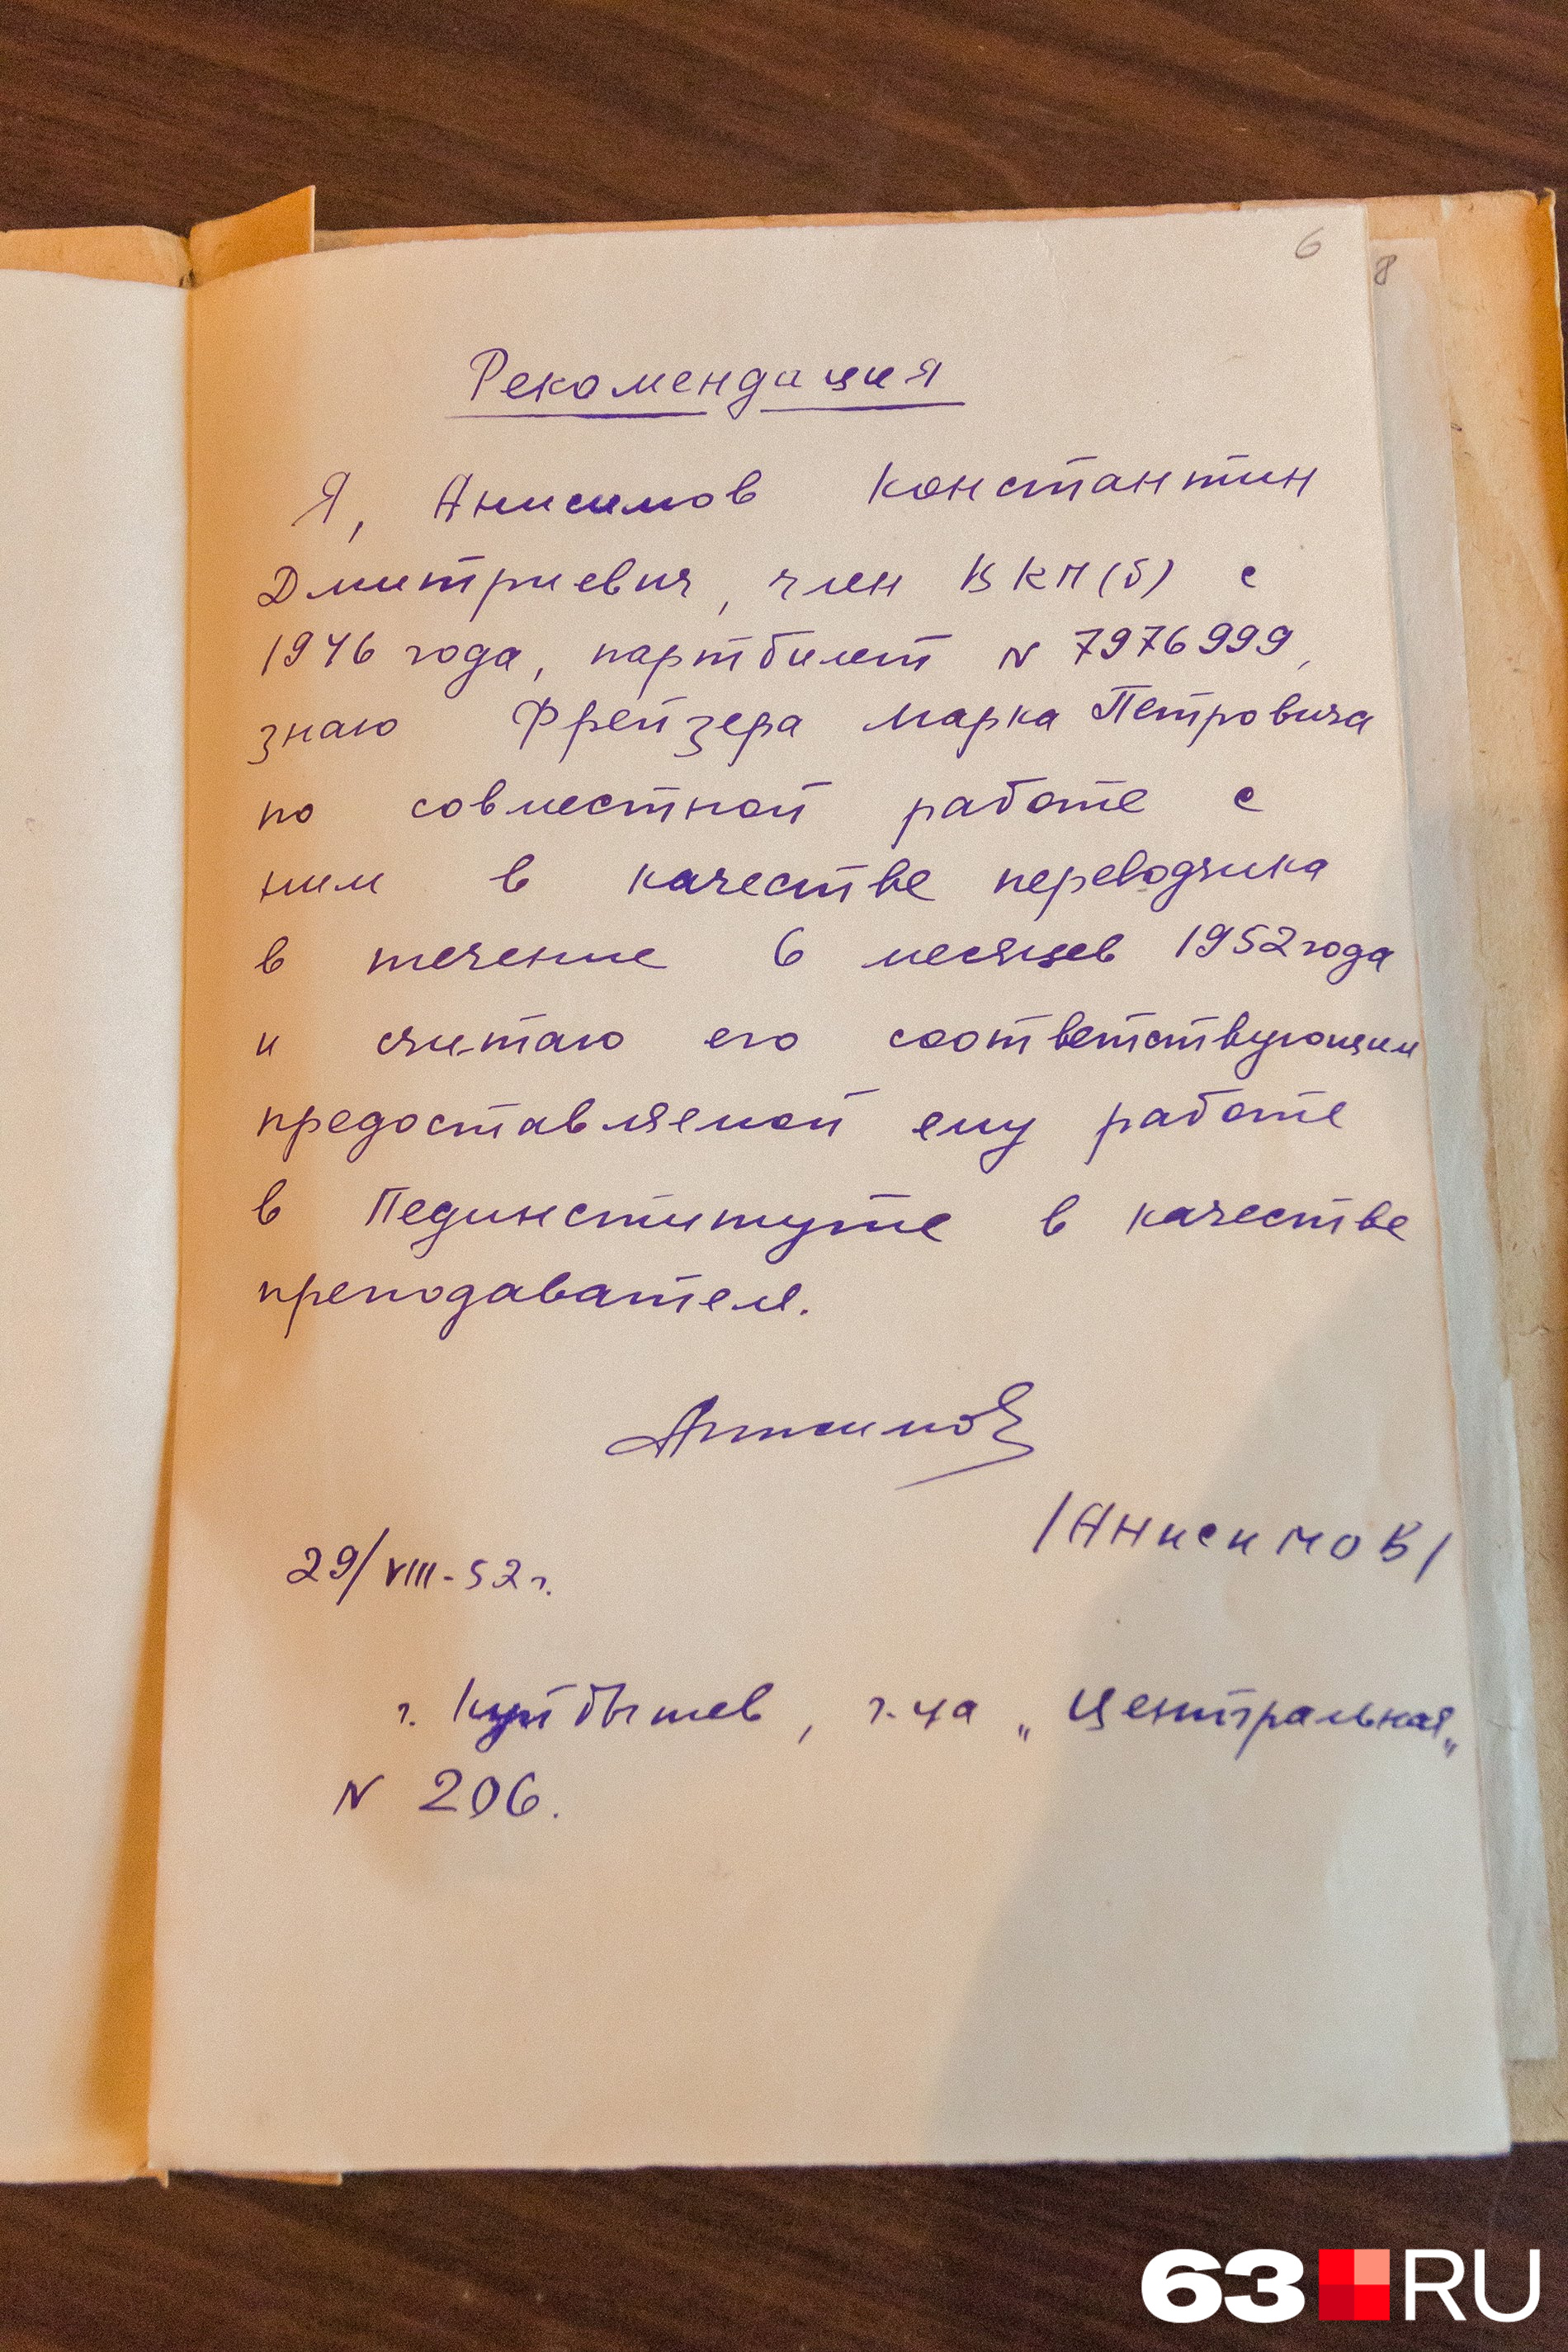 6
8
Рекомендация
Я, Анисимов Константин
Дмитриевич, член ВКП(б) с
1946 года, партбилет N 7976999,
знаю Фрейзера Марка Петровича
по совместной работе с
ним в качестве переводчика
в течение 6 месяцев 1952 года
и считаю его соответствующим
предоставляемой ему работе
в Пединституте в качестве
преподавателя.
Анисимов
/Анисимов/
29/VIII-52 г.
г. Куйбышев, г-ца „Центральная„
N 206.
63 RU